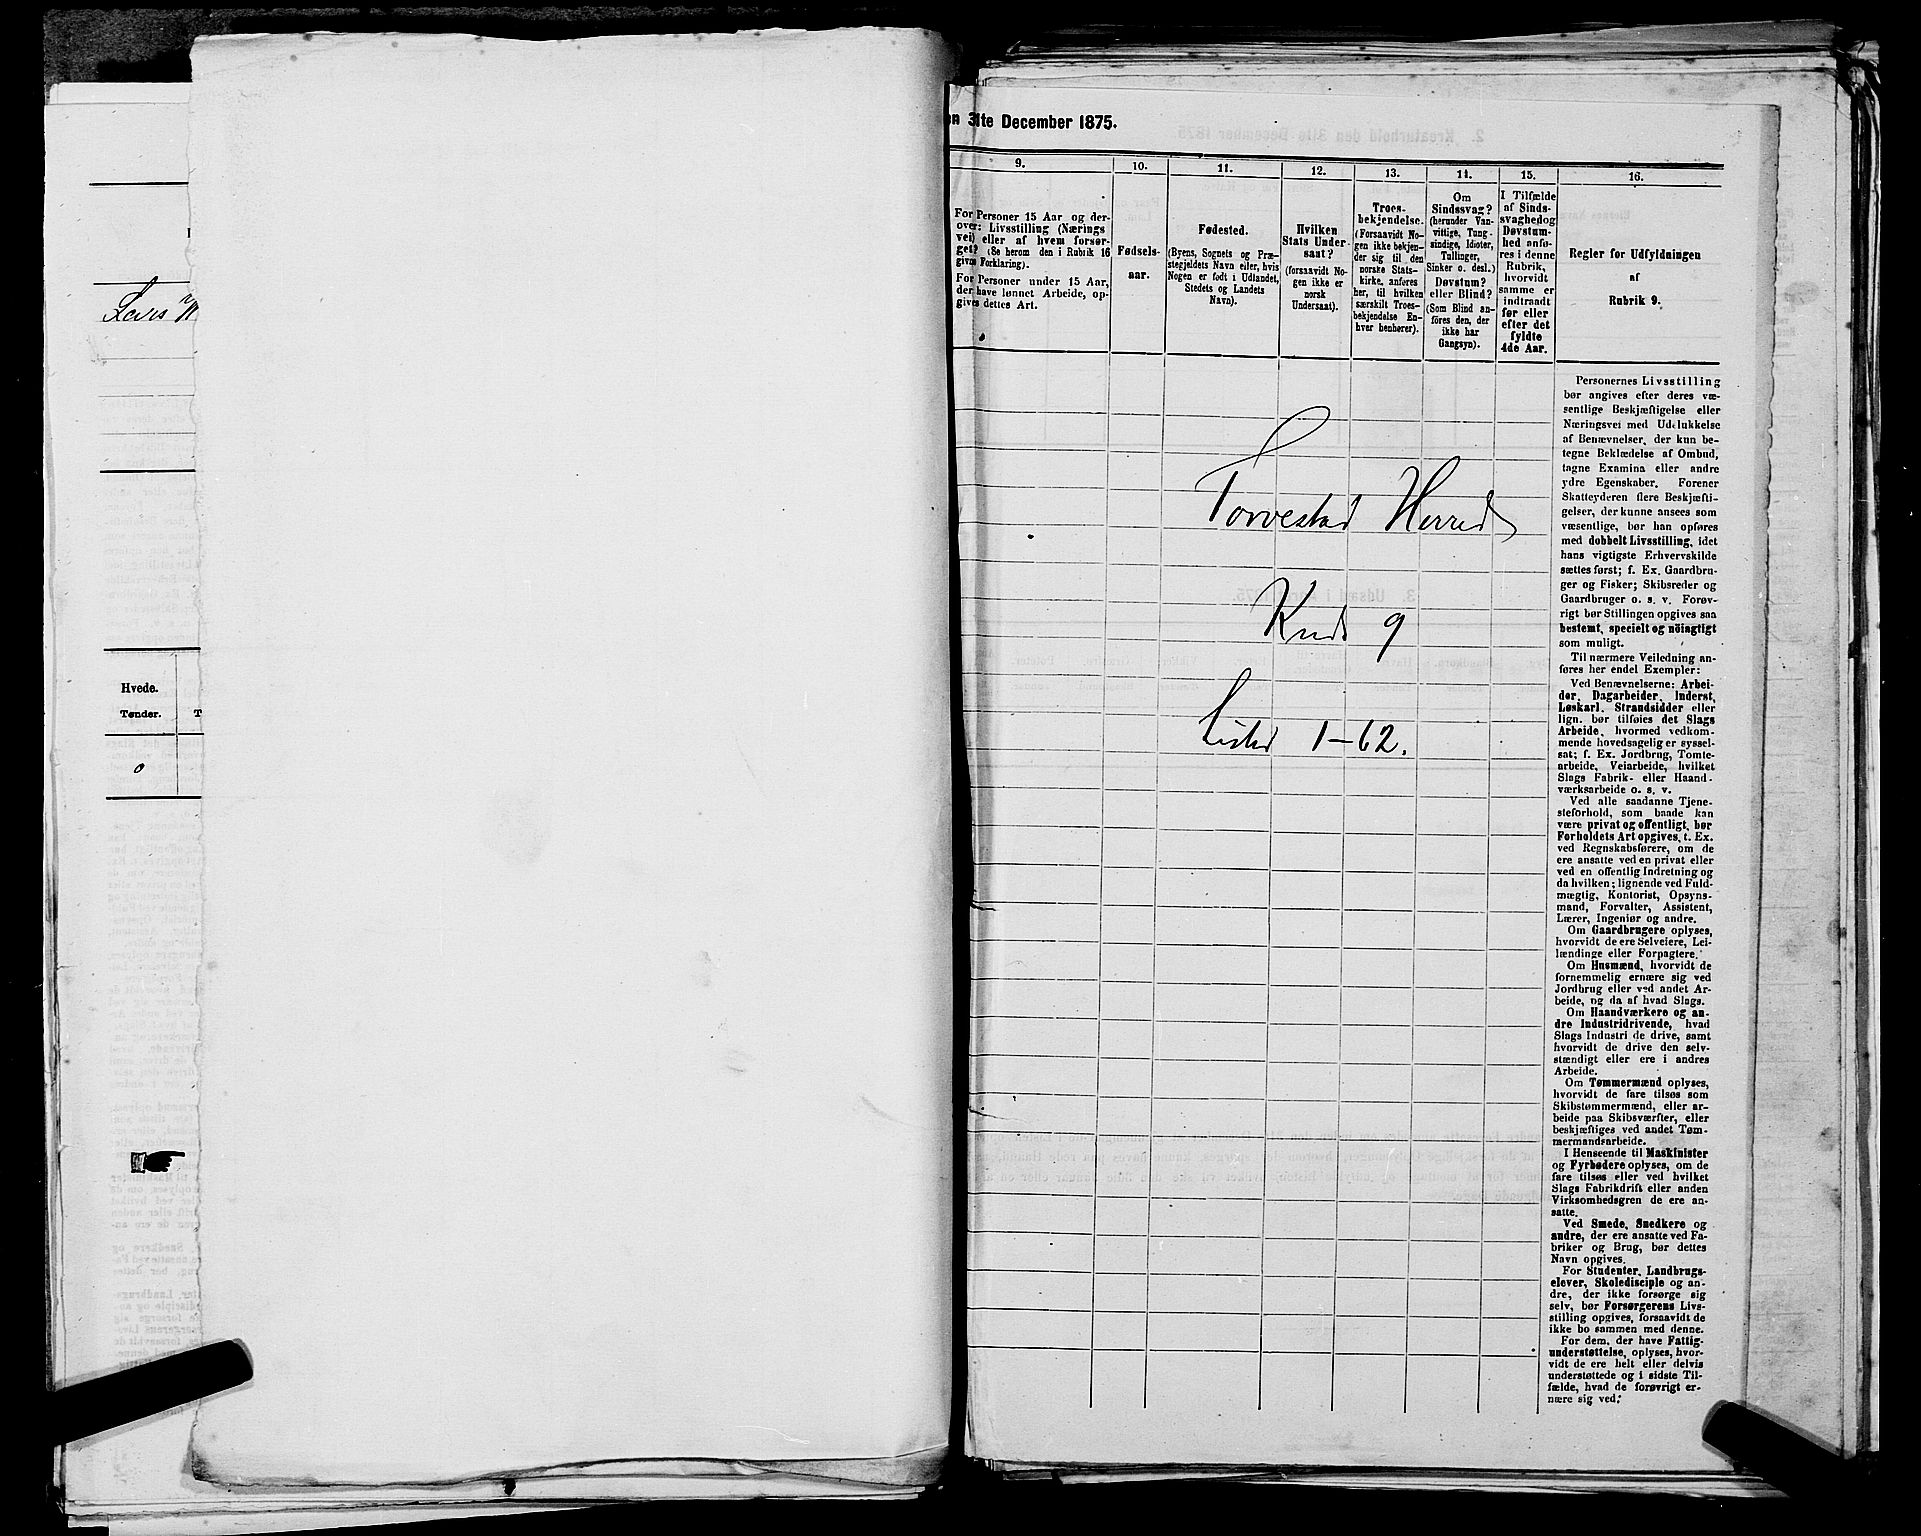 Lars
Hvede.
Tønder.
0
31te December 1875.
9.
For Personer 15 Aar og der-
over: Livsstilling (Nærings
vei) eller af hvem forsør-
get? (Se herom den i Rubrik 16
givne Forklaring).
For Personer under 15 Aar,
der have lønnet Arbeide, op-
gives dettes Art.
10.
Fødsels-
aar.
11.
Fødested.
(Byens, Sognets og Præ-
stegjeldets Navn eller, hvis
Nogen er født i Udlandet,
Stedets og Landets
Navn).
12.
Hvilken
Stats Under-
saat?
(forsaavidt No-
gen ikke er
norsk
Undersaat).
13.
Troes-
bekjendelse.
(Forsaavidt No-
gen ikke bekjen-
der sig til den
norske Stats-
kirke, anføres
her, til hvilken
særskilt Troes-
bekjendelse En-
hver henhører).
14.
Om
Sindssvag?
(herunder Van-
vittige, Tung-
sindige, Idioter,
Tullinger,
Sinker o. desl.)
Døvstum?
eller Blind?
(Som Blind an-
føres den, der
ikke har
Gangsyn).
15.
I Tilfælde
af Sinds-
svaghed og
Døvstum-
hed anfø-
res i denne
Rubrik,
hvorvidt
samme er
indtraadt
før eller
efter det
fyldte
4de Aar.
16.
Regler for Udfyldningen
af
Rubrik 9.
Torvestad Herred
Kreds 9
Lister 1-62.
Personernes Livsstilling
bør angives efter deres væ-
sentlige Beskjæftigelse eller
Næringsvei med Udelukkelse
af Benævnelser, der kun be-
tegne Beklædelse af Ombud,
tagne Examina eller andre
ydre Egenskaber. Forener
Skatteyderen flere Beskjæfti-
gelser, der kunne ansees som
væsentlige, bør han opføres
med dobbelt Livsstilling, idet
hans vigtigste Erhvervskilde
sættes først; f. Ex. Gaardbru-
ger og Fisker; Skibsreder og
Gaardbruger o. s. v. Forøv-
rigt bør Stillingen opgives saa
bestemt, specielt og nöiagtigt
som muligt.
Til nærmere Veiledning an-
føres her endel Exempler:
Ved Benævnelserne: Arbei-
der, Dagarbeider, Inderst,
Løskarl, Strandsidder eller
lign. bør tilføies det Slags
Arbeide, hvormed vedkom-
mende hovedsagelig er syssel-
sat; f. Ex. Jordbrug, Tomte-
arbeide, Veiarbeide, hvilket
Slags Fabrik- eller Haand-
værksarbeide o. s. v.
Ved alle saadanne Tjene-
steforhold, som baade kan
være privat og offentligt, bør
Forholdets Art opgives, t. Ex.
ved Regnskabsførere, om de
ere ansatte ved en privat eller
ved en offentlig Indretning og
da hvilken; lignende ved Fuld-
mægtig, Kontorist, Opsyns-
mand, Forvalter, Assistent,
Lærer, Ingeniør og andre.
Om Gaardbrugere oplyses,
hvorvidt de ere Selveiere, Lei-
lændinge eller Forpagtere.
Om Husmænd, hvorvidt de
fornemmelig ernære sig ved
Jordbrug eller ved andet Ar-
beide, og da af hvad Slags.
Om Haandværkere og an-
dre Industridrivende, hvad
Slags Industri de drive, samt
hvorvidt de drive den selv-
stændigt eller ere i andres
Arbeide.
Om Tømmermænd oplyses,
hvorvidt de fare tilsøs som
Skibstømmermænd, eller ar-
beide paa Skibsværfter, eller
beskjæftiges ved andet Tøm-
mermandsarbeide.
I Henseende til Maskinister
og Fyrbødere oplyses, om de
fare tilsøs eller ved hvilket
Slags Fabrikdrift eller anden
Virksomhedsgren de ere an-
satte.
Ved Smede, Snedkere og
andre, der ere ansatte ved Fa-
briker og Brug, bør dettes
Navn opgives.
For Studenter, Landbrugs-
elever, Skoledisciple og an-
dre, der ikke forsørge sig
selv, bør Forsørgerens Livs-
stilling opgives, forsaavidt de
ikke bo sammen med denne.
For dem, der have Fattig-
understøttelse, oplyses, hvor-
vidt de ere helt eller delvis
understøttede og i sidste Til-
fælde, hvad de forøvrigt er-
nære sig ved.